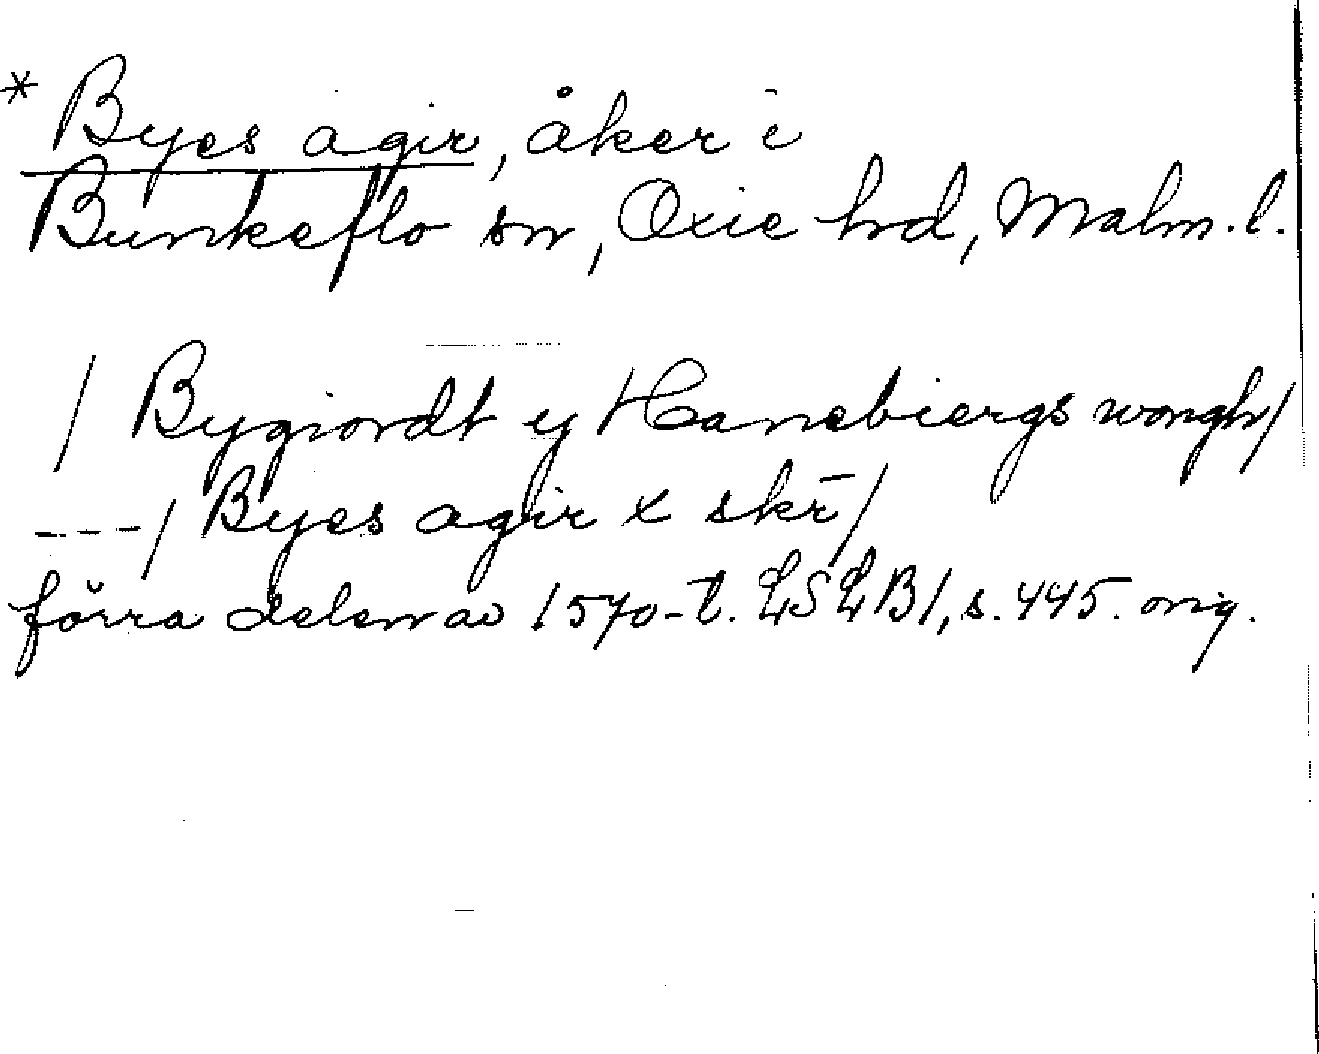 * Byes agir, åker i
Bunkeflo sn, Oxie hd, Malm. l.
/ Bygiordt y Hanebiergs wongh/
---/ Byes agir x skr̄/
förra delen av 1570-t. LSLB1, s. 445. orig.